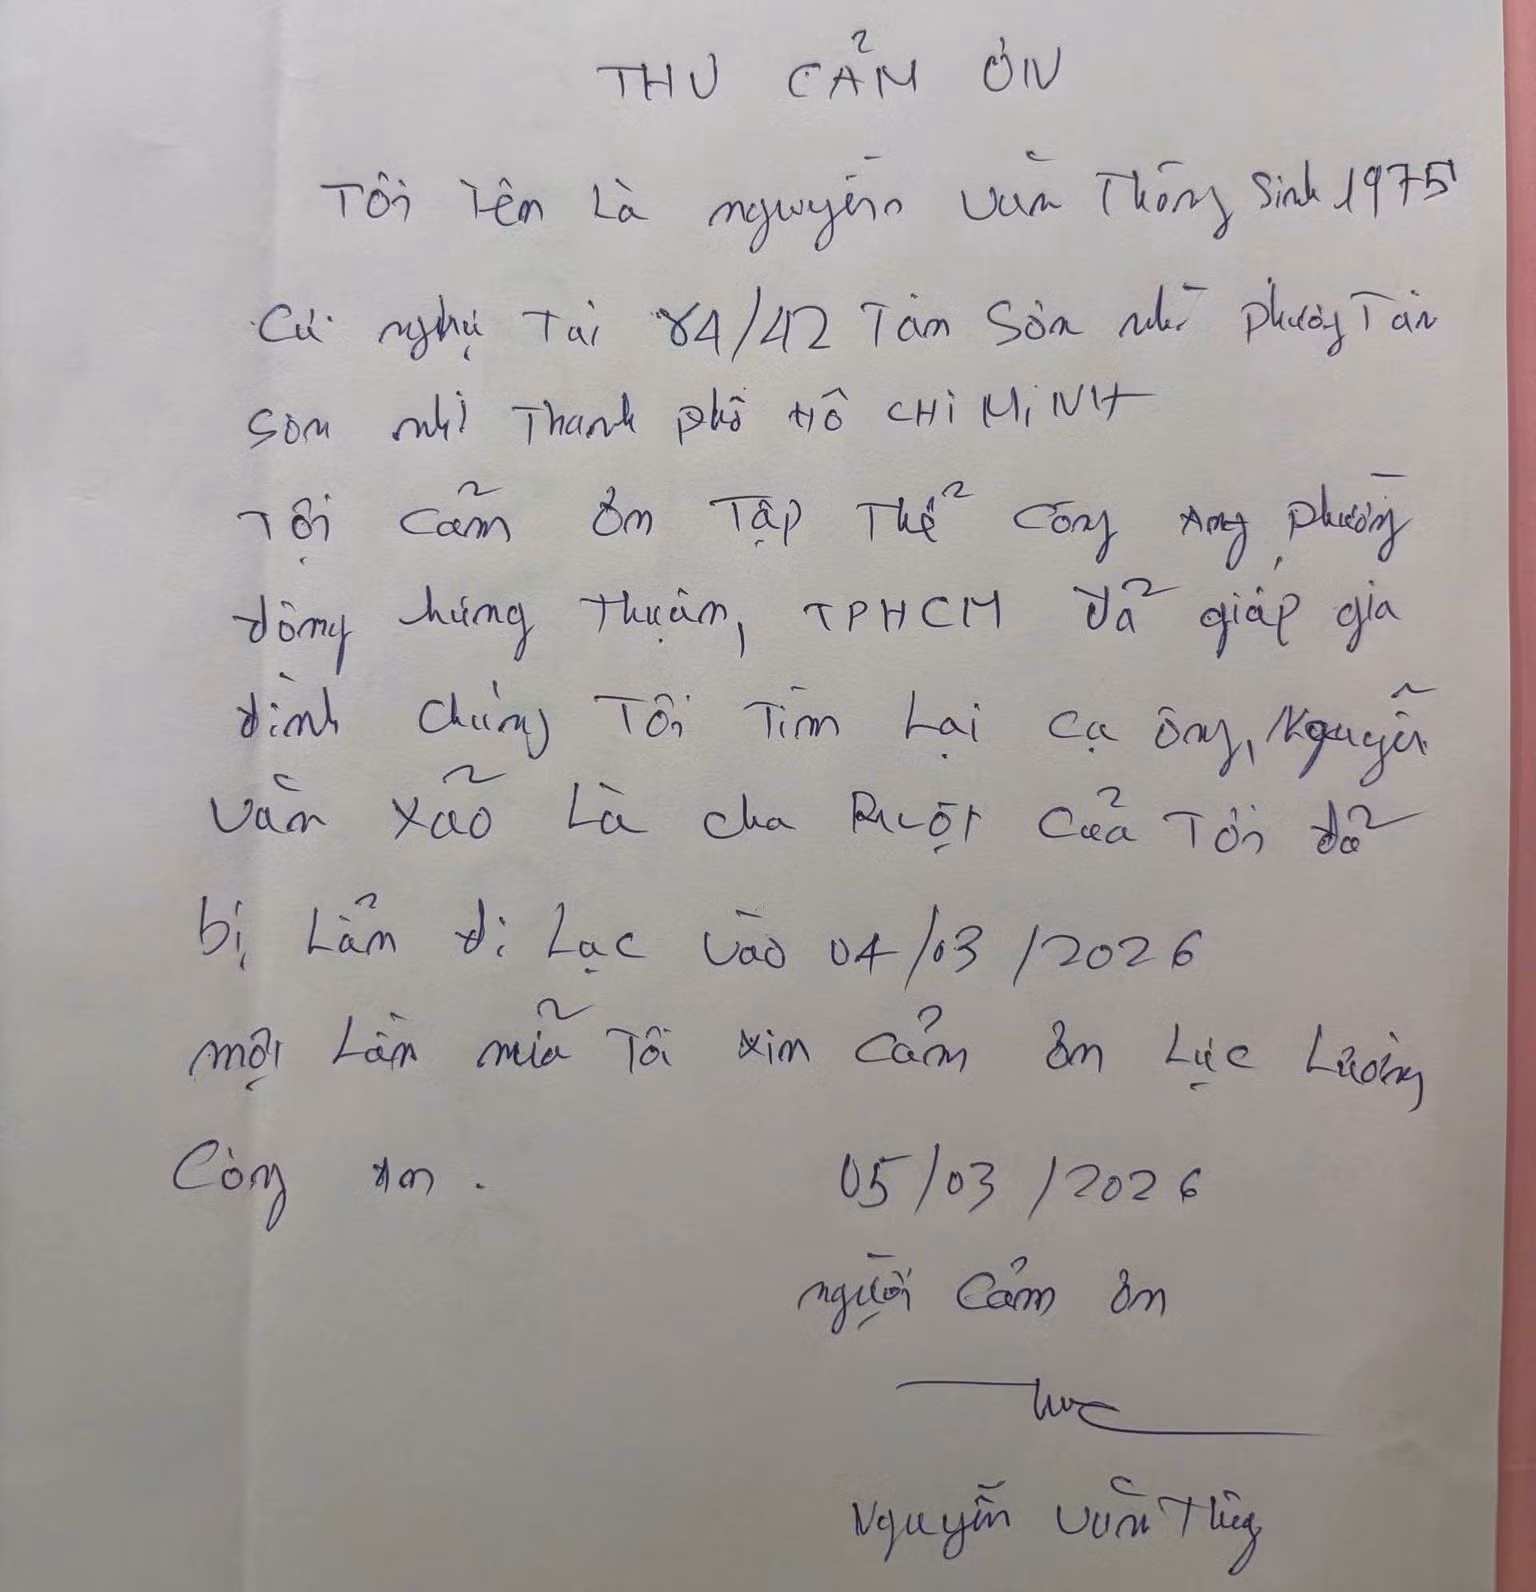 THƯ CẢM ƠN
Tôi Tên Là nguyễn Văn Thông Sinh 1975
Cư nghụ Tai 84/42 Tân Sơn nhì phường Tân
Sơn nhì Thanh phố Hồ CHÍ MINH
Tội cảm ơn Tập Thể Công Ang phường
đông hưng Thuận, TPHCM Đã giáp gia
đình chúng Tôi Tìm Lại cạ ông, Nguyễn
Văn Xão Là cha Ruột Của Tôi đã
bị Lẩn đi Lạc vào 04/03/2026
một Lần nữa Tôi xin cảm ơn Lực Lượng
Công an.
05/03/2026
người cảm ơn
Nguyễn Văn